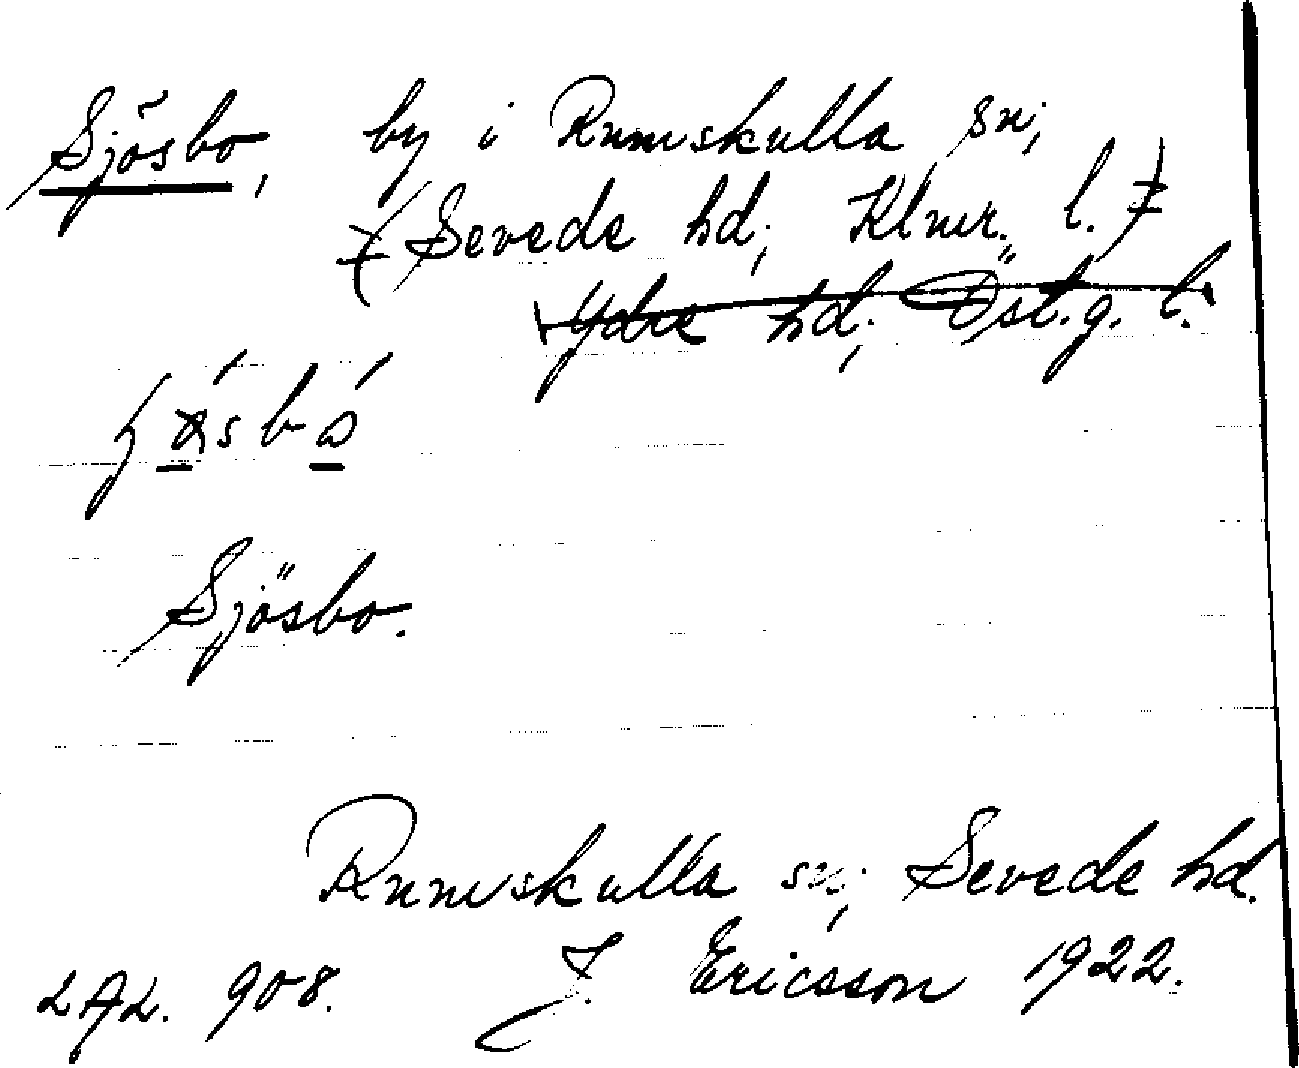 Sjösbo, by i Rumskulla sn;
(Sevede hd; Klmr. l.)
Ydre hd; Öst.g. l.
Sjösbo.
Rumskulla sn; Sevede hd.
LAL. 908. J. Ericsson 1922.